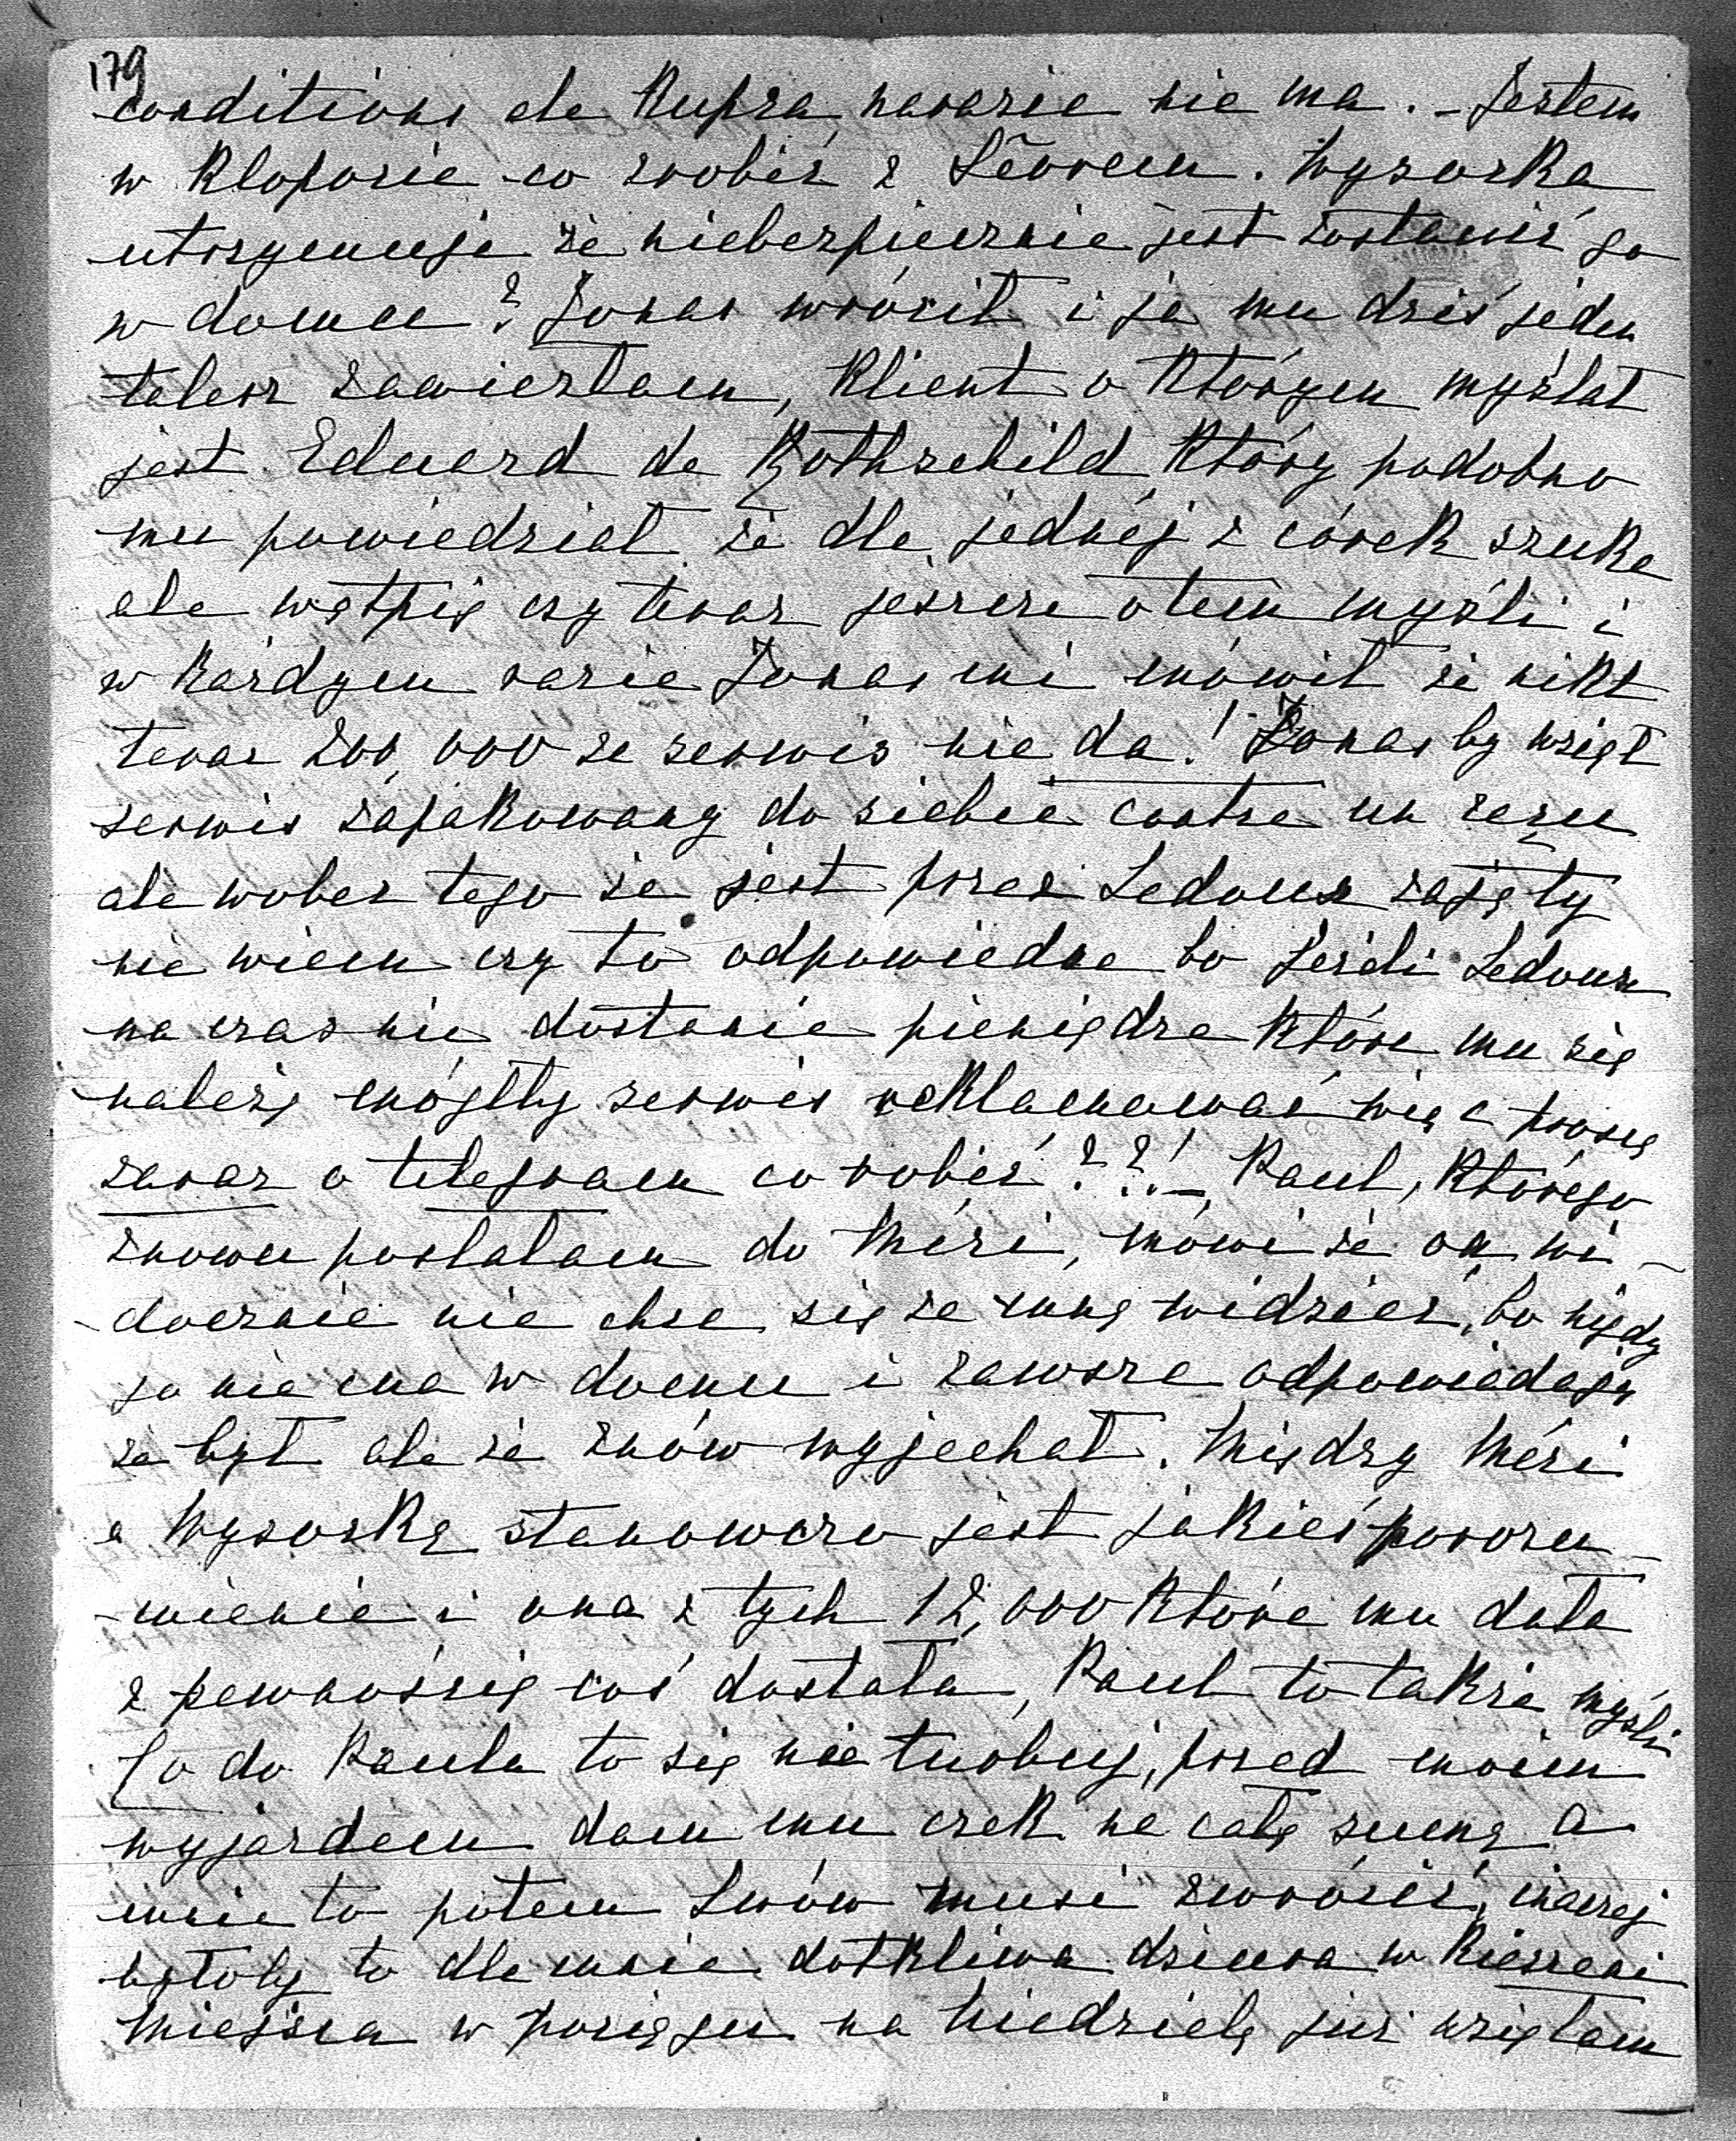 179
conditions ale kupca narazie nie ma. – Jestem
w kłopocie co zrobić z Sèvrem. Wysocka
utrzymuje że niebezpiecznie jest zostawić go
w domu? Jonas wrócił i ja mu dziś jeden
talerz zawiozłam, klient o którym myślał
jest Edward de Rothschild który podobno
mu powiedział że dla jednej z córek szuka
ale wątpię czy teraz jeszcze o tem myśli i
w każdym razie Jonas mi mówił że nikt
teraz 200,000 za serwis nie da! Jonas by wziął
serwis zapakowany do siebie contre un reçu
ale wobec tego że jest przez Ledoux zajęty
nie wiem czy to odpowiedne bo jeżeli Ledoux
na czas nie dostanie pieniędze które mu się
należą mógłby serwis reklamować więc proszę
zaraz o telegram co robić??! – Paul, którego
znowu posłałam do Méri, mówi że on wi-
-docznie nie chce się ze mną widzieć, bo nigdy
go nie ma w domu i zawsze odpowiadają
że był ale że znów wyjechał. Między Méri
a Wysocką stanowczo jest jakieś porozu-
-mienie i ona z tych 12,000 które mu dała
z pewnością coś dostała, Paul to także myśli
Co do Paula to się nie turbuj, przed moim
wyjazdem dam mu czek na całą sumę a
mnie to potem Lwów musi zwrócić, inaczej
byłoby to dla mnie dotkliwa dziura w kieszeni
Miejsca w pociągu na niedzielę już wzięłam